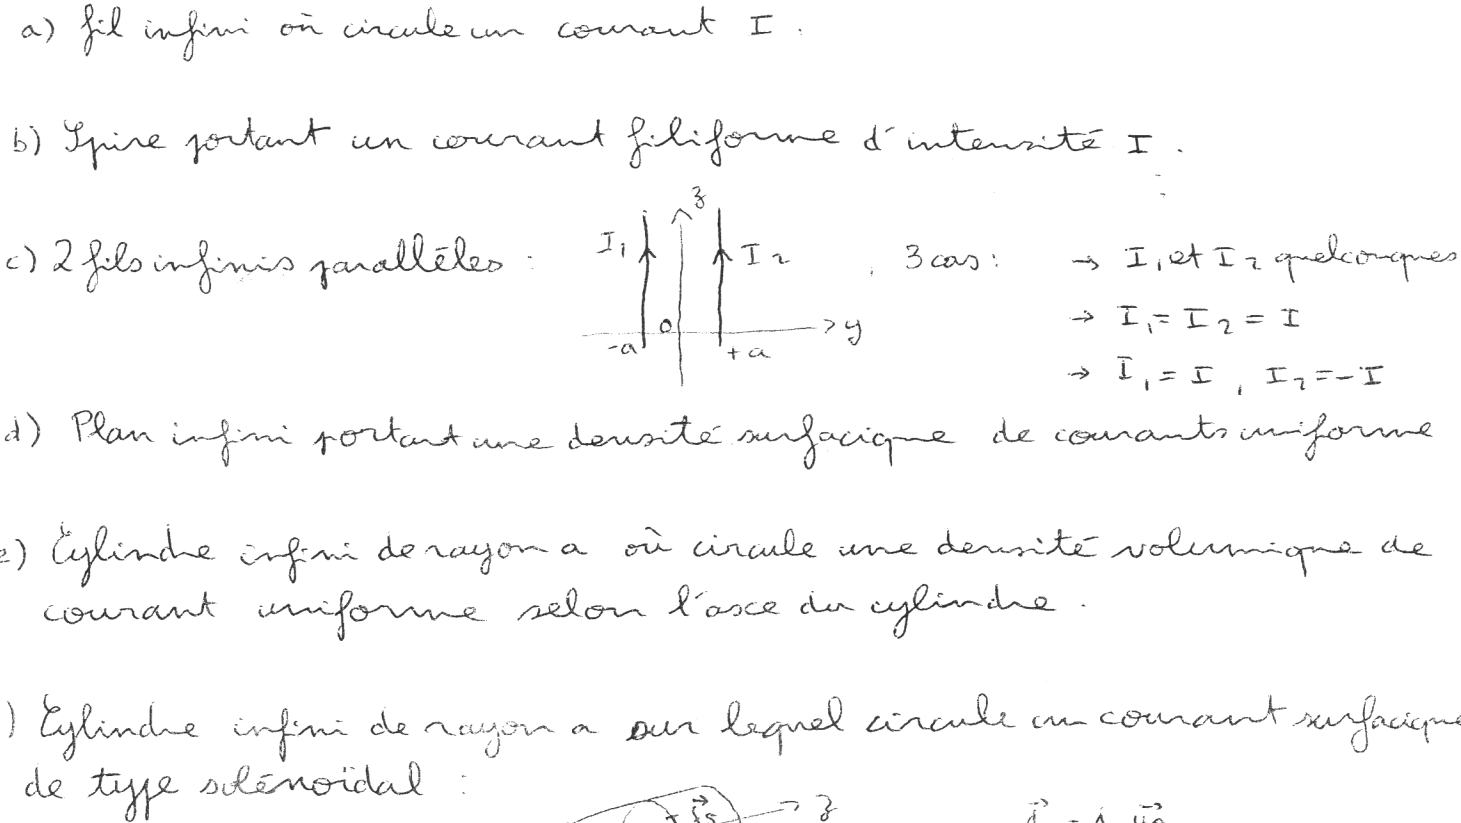 a) fil infini où circule un courant I.
b) Spire portant un courant filiforme d'intensité I.
c) 2 fils infinis parallèles : I₁ z I₂ O y -a +a , 3 cas : → I₁ et I₂ quelconques
→ I₁ = I₂ = I
→ I₁ = I , I₂ = -I
d) Plan infini portant une densité surfacique de courants uniforme
e) Cylindre infini de rayon a où circule une densité volumique de
courant uniforme selon l'axe du cylindre.
) Cylindre infini de rayon a sur lequel circule un courant surfacique
de type solénoïdal :
z